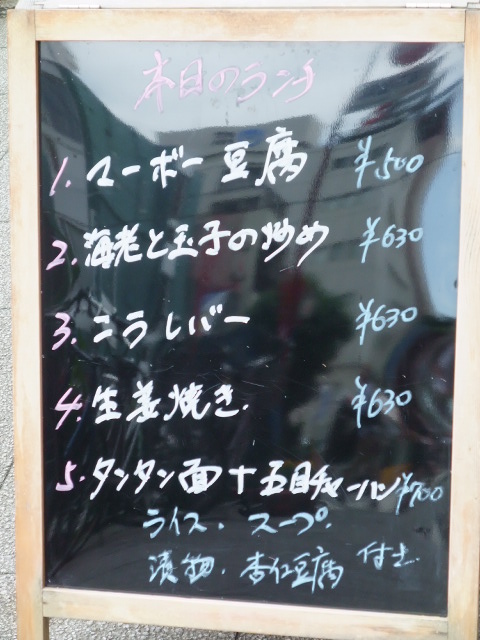 本日のランチ
1. マーボー豆腐 ¥500
2. 海老と玉子の炒め ¥630
3. ニラレバー ¥630
4. 生姜焼き. ¥630
5. タンタン面+五目チャーハン ¥700
ライス. スープ.
漬物. 杏仁豆腐 付